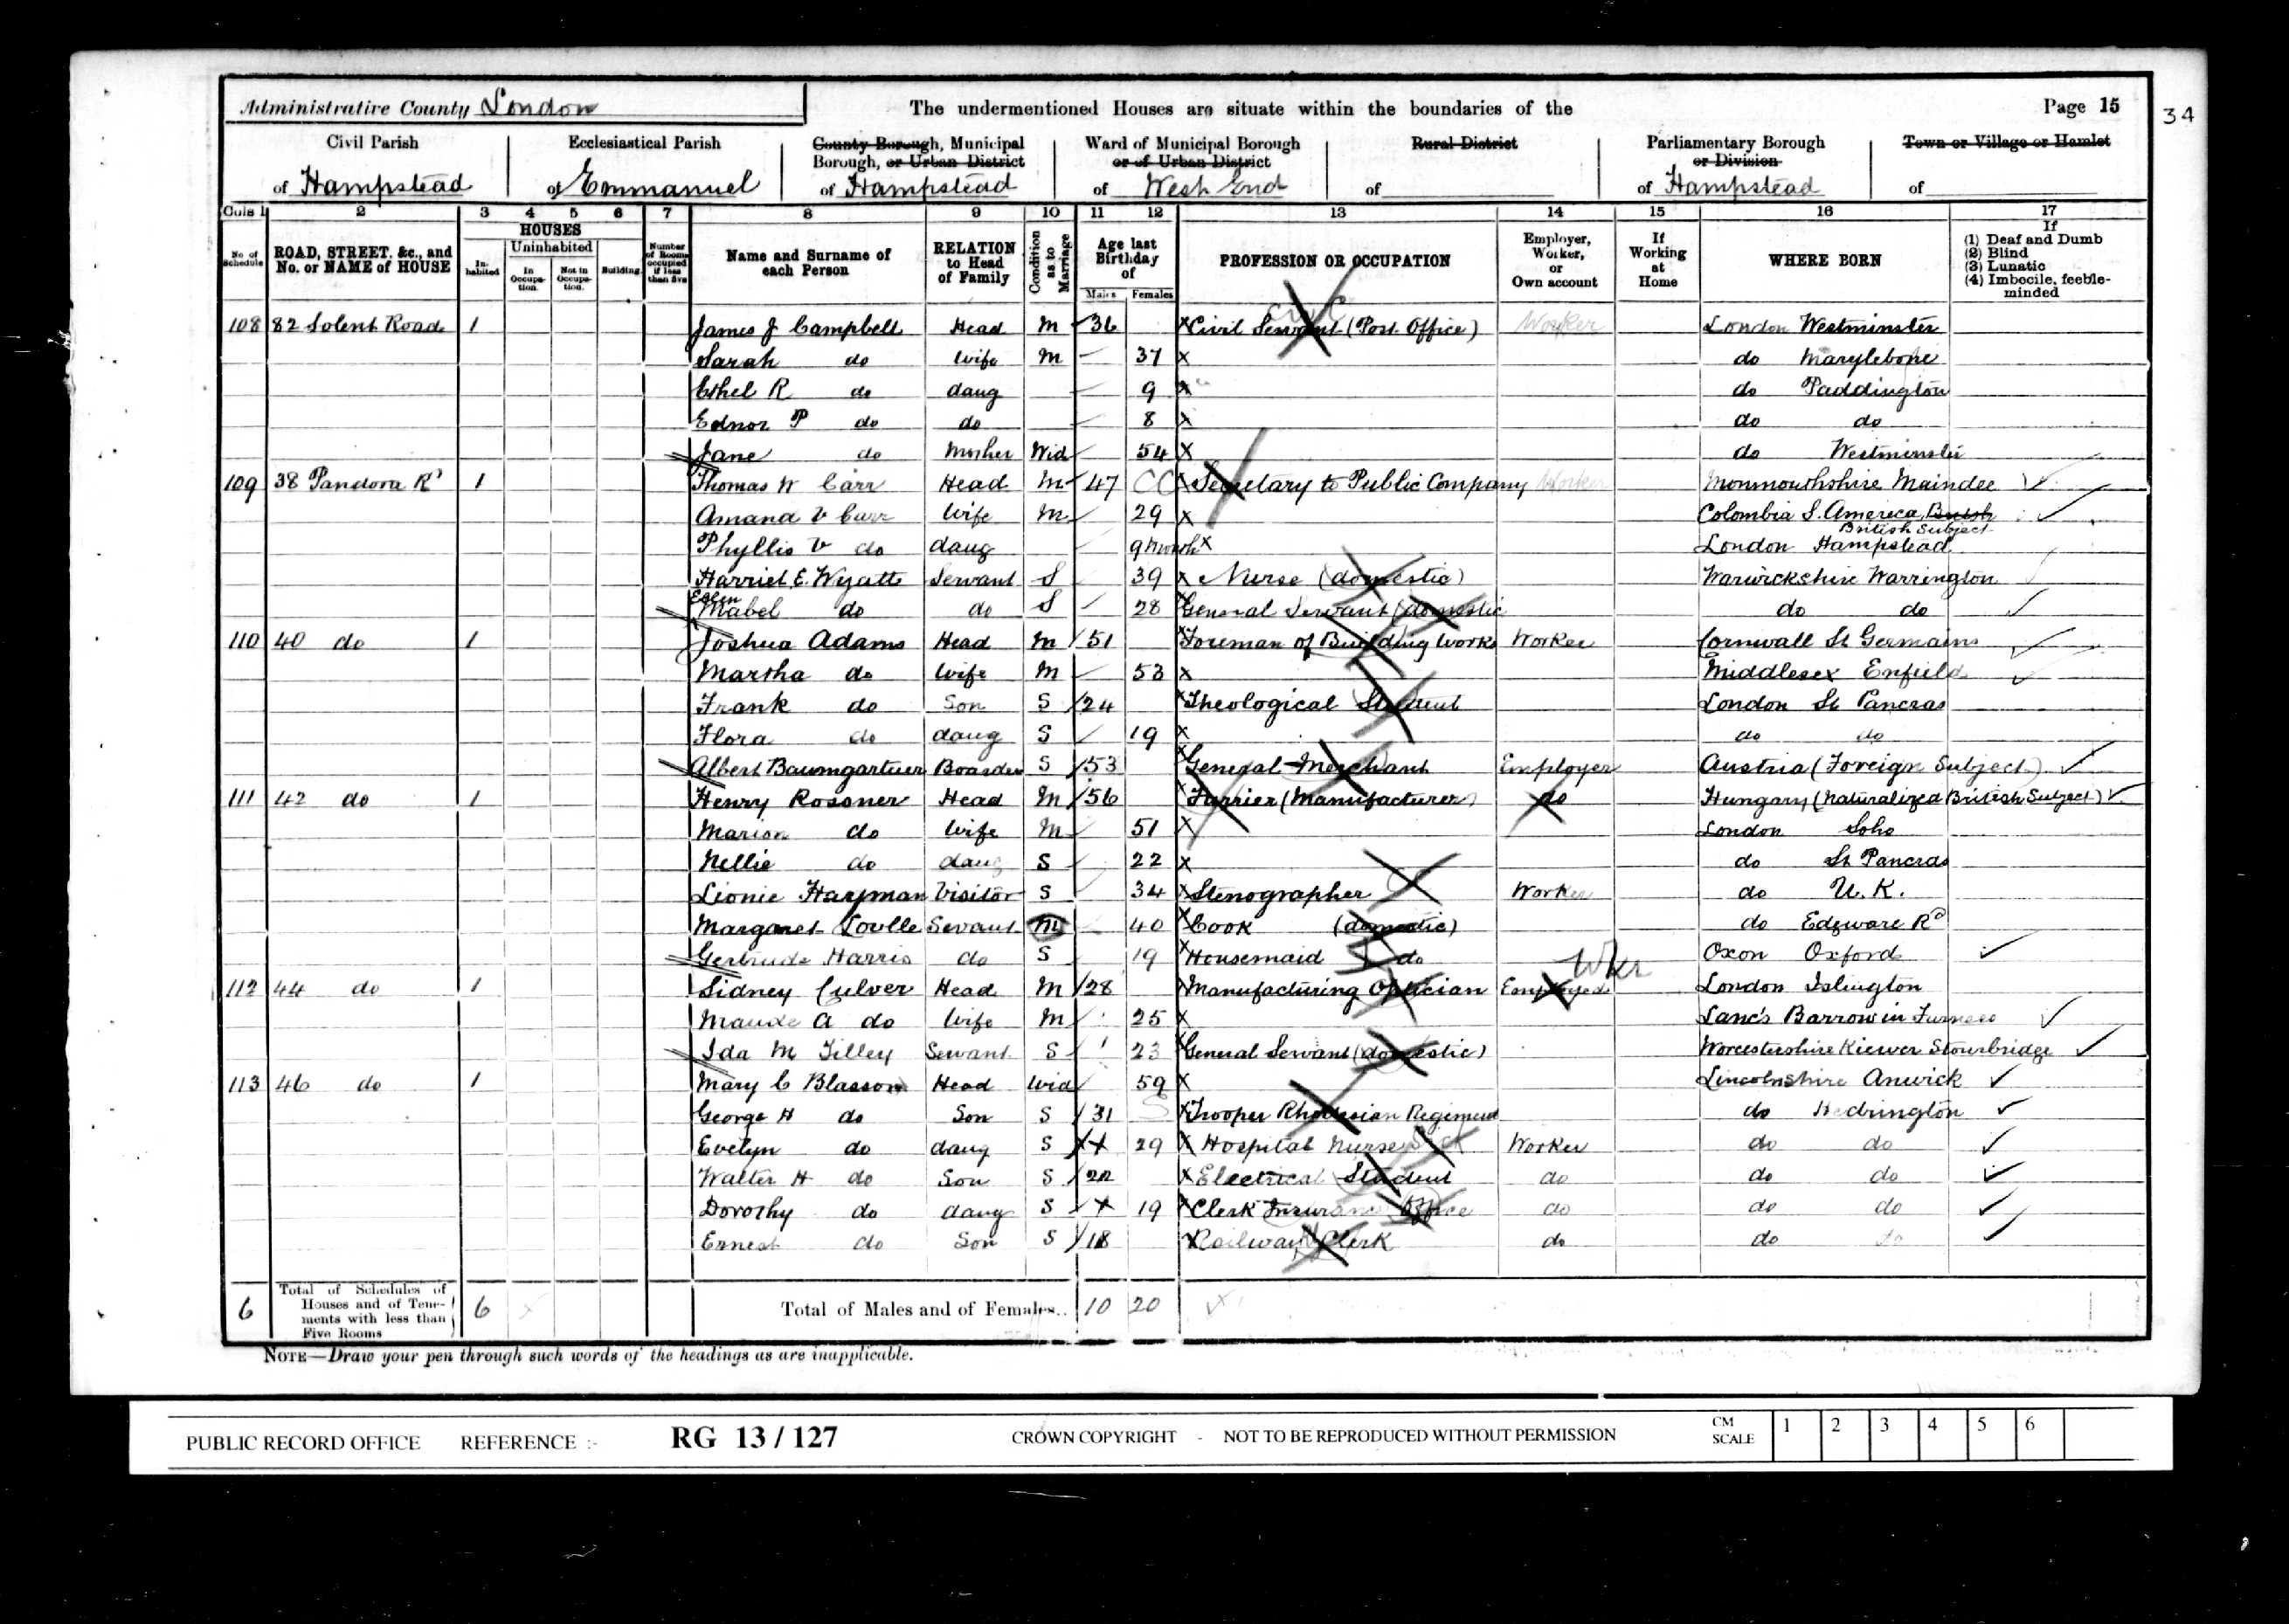 Administrative County London
The undermentioned Houses are situate within the boundaries of the
Page 15
34
Civil Parish of Hampstead
Ecclesiastical Parish of Emmanuel
County Borough, Municipal Borough, or Urban District of Hampstead
Ward of Municipal Borough or of Urban District of West End
Rural District of
Parliamentary Borough or Division of Hampstead
Town or Village or Hamlet of
Cols 1 2 3 4 5 6 7 8 9 10 11 12 13 14 15 16 17
No. of Schedule
ROAD, STREET, &c., and No. or NAME of HOUSE
HOUSES
Inhabited
Uninhabited
In Occupation.
Not in Occupation.
Building.
Number of Rooms occupied if less than five
Name and Surname of each Person
RELATION to Head of Family
Condition as to Marriage
Age last Birthday of
Males Females
PROFESSION OR OCCUPATION
Employer, Worker, or Own account
If Working at Home
WHERE BORN
If
(1) Deaf and Dumb
(2) Blind
(3) Lunatic
(4) Imbecile, feeble-minded
108 82 Solent Road 1 James J Campbell Head M 36 Civil Servant (Post Office) Worker London Westminster
Sarah do Wife M 37 do Marylebone
Ethel R do daug 9 do Paddington
Ednor P do do 8 do do
Jane do Mother Wid 54 do Westminster
109 38 Pandora Rd 1 Thomas W Carr Head M 47 Secretary to Public Company Worker Monmouthshire Maindee
Amand V Carr Wife M 29 Colombia S. America British
British Subject
Phyllis V do daug 9 Month London Hampstead
Harriet E. Wyatt Servant S 39 Nurse (domestic) Warwickshire Warrington
Ellen
Mabel do do S 28 General Servant (domestic do do
110 40 do 1 Joshua Adams Head M 51 Foreman of Building Works Worker Cornwall St Germains
Martha do Wife M 53 Middlesex Enfield
Frank do Son S 24 Theological Student London St Pancras
Flora do daug S 19 do do
Albert Baumgartner Boarder S 53 General Merchant Employer Austria (Foreign Subject)
111 42 do 1 Henry Rossner Head M 56 Furrier (Manufacturer) do Hungary (Naturalized British Subject)
Marion do Wife M 51 London Soho
Nellie do daug S 22 do St Pancras
Lionie Harpman Visitor S 34 Stenographer Worker do U.K.
Margaret Servant M 40 Cook (domestic) do Edgware Rd
Gertrude Harris do S 19 Housemaid do Oxon Oxford
Wker
112 44 do 1 Sidney Culver Head M 28 Manufacturing Optician Employed London Islington
Maude A do Wife M 25 Lanc's Barrow in Furness
Ida M Tilley Servant S 23 General Servant (domestic) Worcestershire Stourbridge
113 46 do 1 Mary C Blasson Head Wid 59 Lincolnshire Anwick
George H do Son S 31 Trooper Rhodesian Regiment do Hedrington
Evelyn do daug S 29 Hospital Nurse Worker do do
Walter H do Son S 22 Electrical Student do do do
Dorothy do daug S 19 Clerk Insurance Office do do do
Ernest do Son S 18 Railway Clerk do do do
6 Total of Schedules of Houses and of Tenements with less than Five Rooms 6 Total of Males and of Females.. 10 20
NOTE—Draw your pen through such words of the headings as are inapplicable.
PUBLIC RECORD OFFICE REFERENCE :- RG 13 / 127 CROWN COPYRIGHT - NOT TO BE REPRODUCED WITHOUT PERMISSION CM SCALE 1 2 3 4 5 6